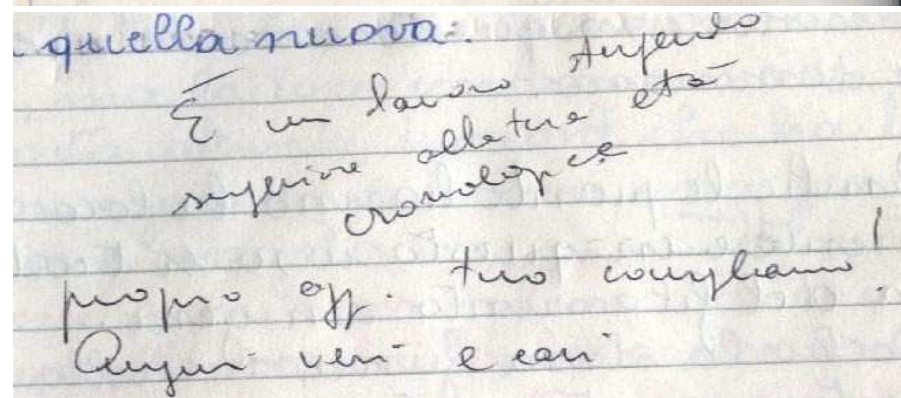 quella nuova.
È un lavoro stupendo
superiore alla tua età
cronologica
proprio oggi tuo compleanno!
Auguri veri e cari